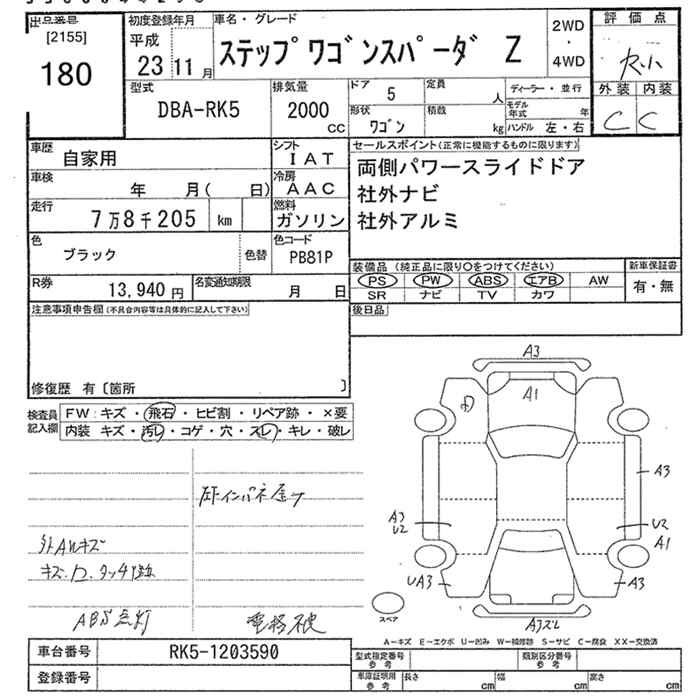 出品番号 初度登録年月 車名・グレード 評価点
[2155] 平成 2WD
180 23 11月 ステップワゴンスパーダ Z ・ R小
4WD
型式 排気量 ドア 5 定員 人 ディーラー・並行 外装 内装
DBA-RK5 2000 cc 形状 ワゴン 積載 kg モデル年式 年 C C
ハンドル 左・右
車歴 自家用 シフト IAT セールスポイント(正常に機能するものに限ります)
車検 年 月( 日) 冷房 AAC 両側パワースライドドア
社外ナビ
走行 7万8千205 km 燃料 ガソリン 社外アルミ
色 ブラック 色替 色コード PB81P
装備品 (純正品に限り〇をつけてください) 新車保証書
R券 13,940円 名変通知期限 月 日 PS PW ABS エアB AW 有・無
SR ナビ TV カワ
注意事項申告欄(不具合内容等は具体的に記入して下さい) 後日品
修復歴 有〔箇所 〕
検査員 FW:キズ・飛石・ヒビ割・リペア跡・×要
記入欄 内装 キズ・汚レ・コゲ・穴・スレ・キレ・破レ
A3
A1
A3
A3
U2
U2
A1
UA3
A3
A3ズレ
スペア
外AWキズ
ABS点灯
A-キズ E-エクボ U-凹み W-補修跡 S-サビ C-腐食 XX-交換済
車台番号 RK5-1203590 型式指定番号 参考 類別区分番号 参考
登録番号 車庫証明用 参考 長さ cm 幅 cm 高さ cm